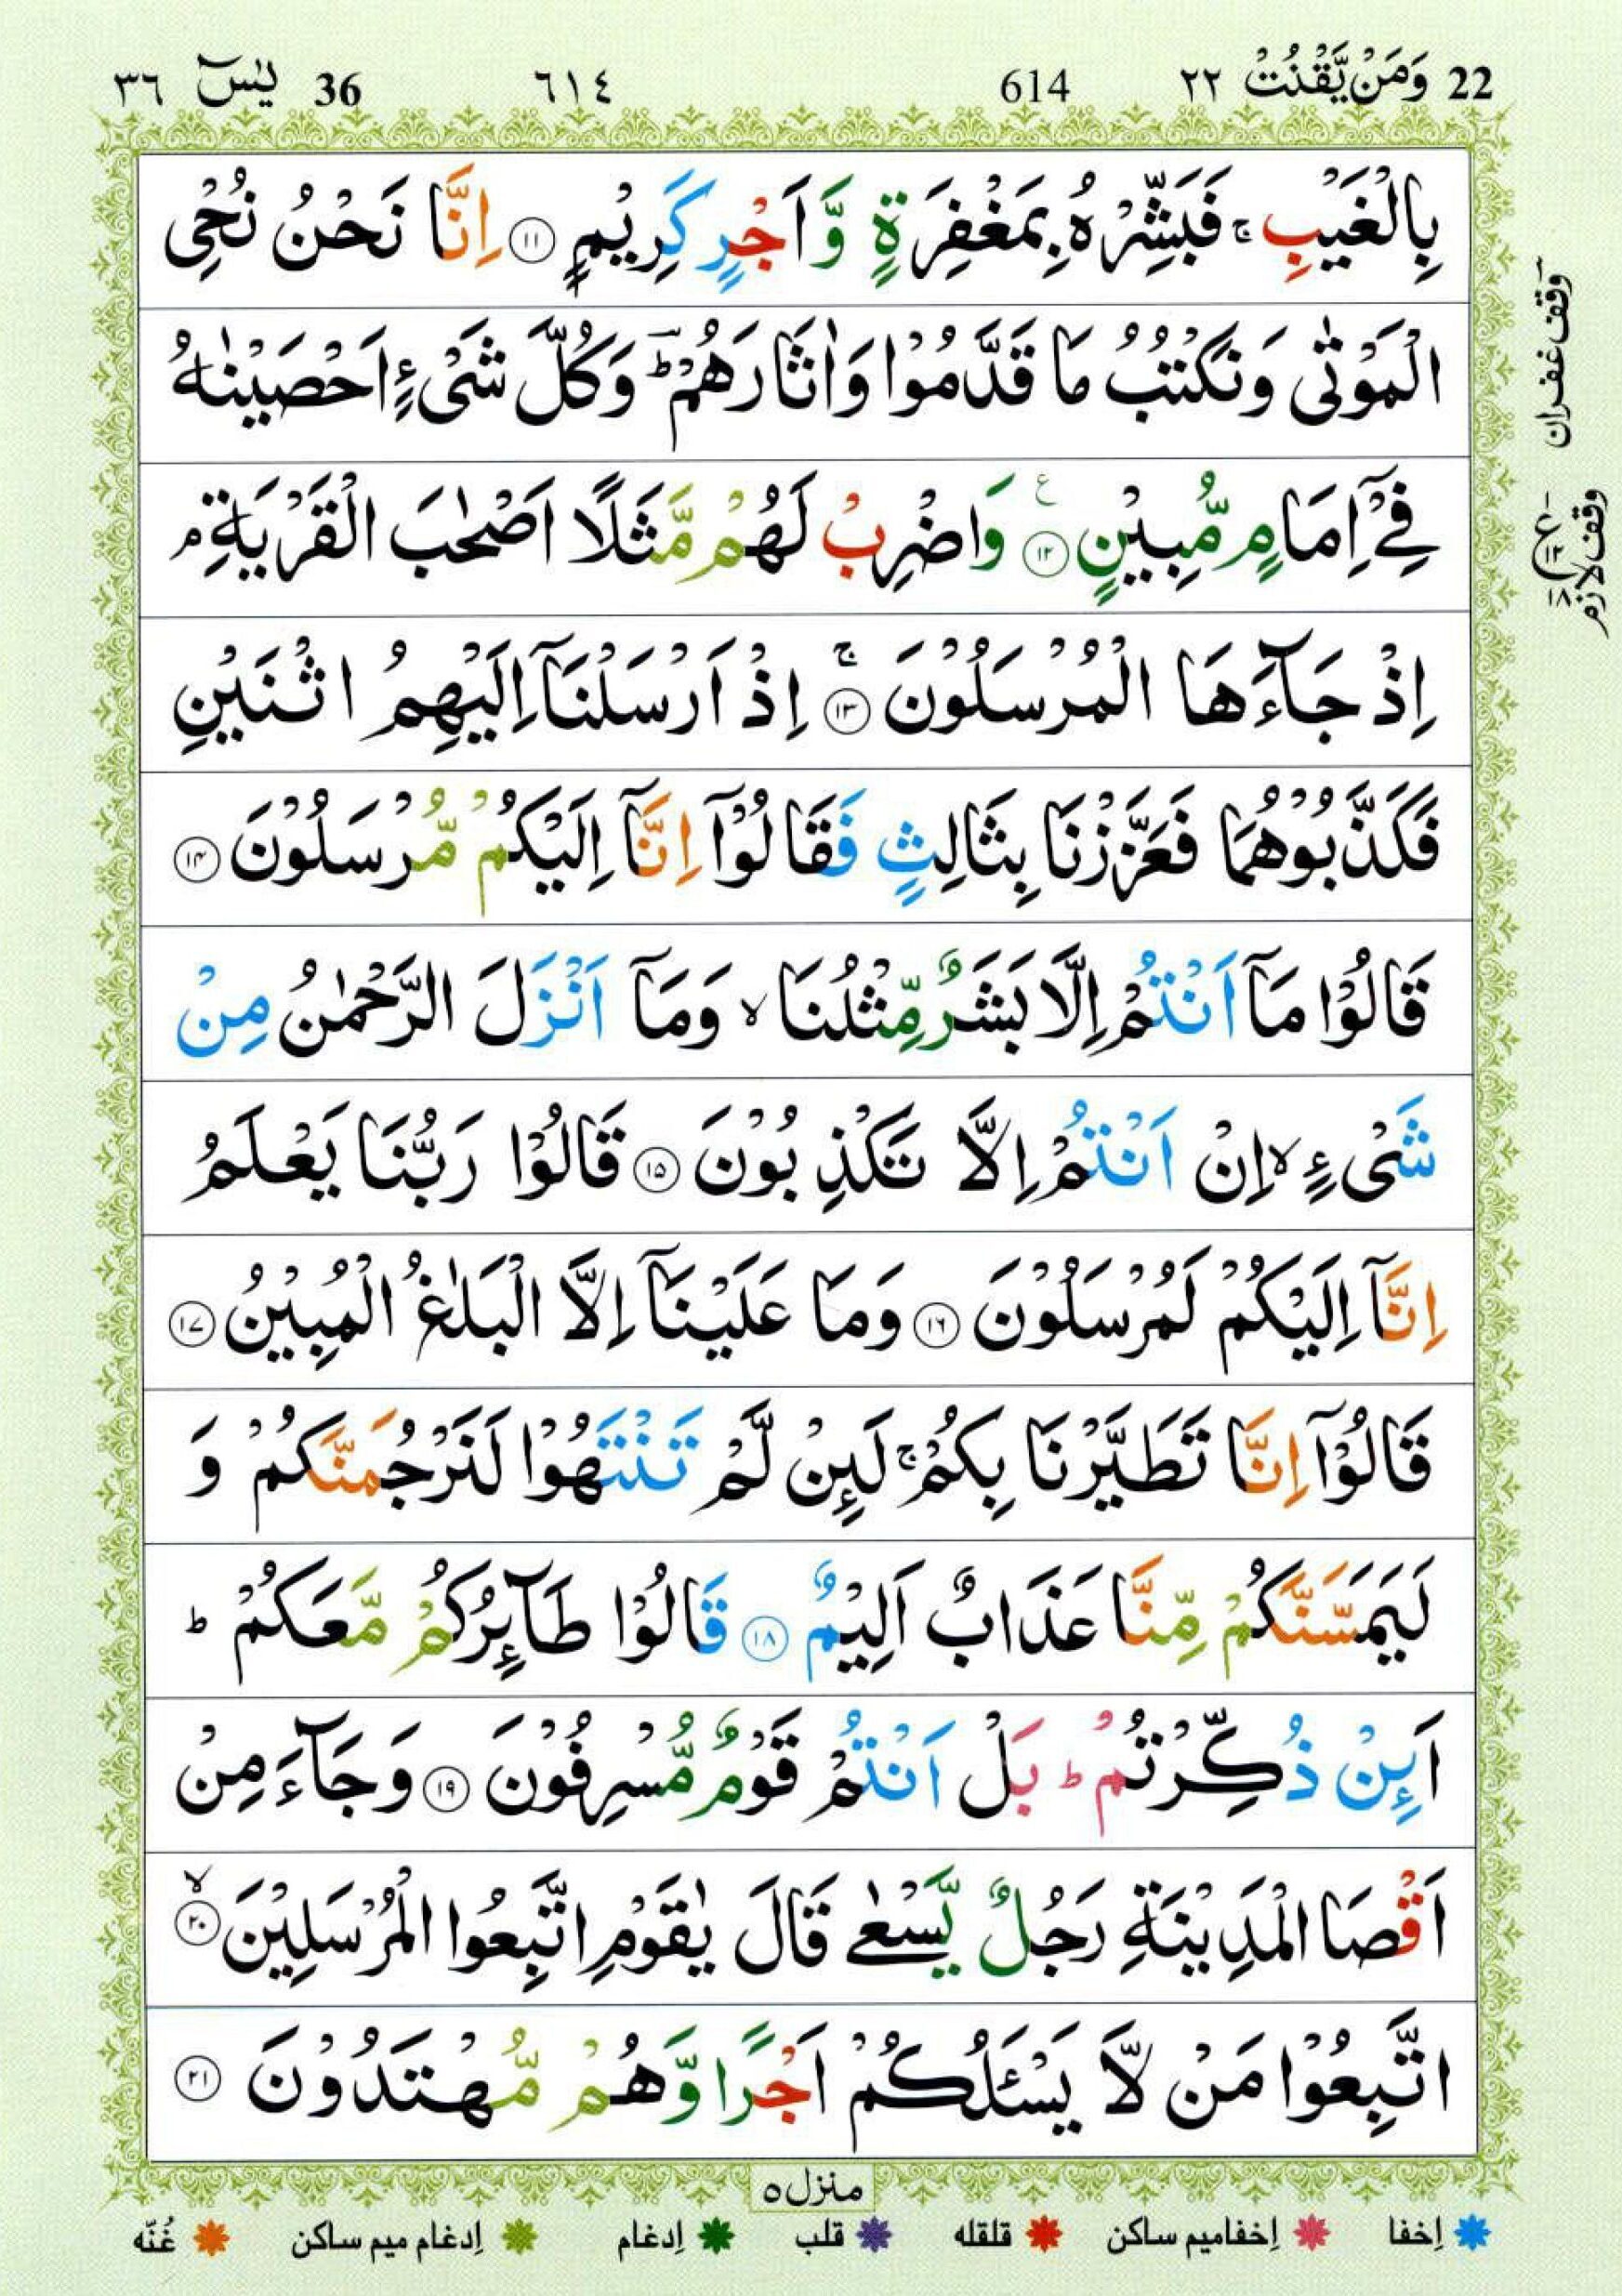 22 وَمَنْ يَّقْنُتْ ٢٢ 614 ٦١٤ 36 يٰسٓ ٣٦
بِالْغَيْبِ ۚ فَبَشِّرْهُ بِمَغْفِرَةٍ وَّاَجْرٍ كَرِيْمٍ ﴿۱۱﴾ اِنَّا نَحْنُ نُحْيِ
الْمَوْتٰى وَنَكْتُبُ مَا قَدَّمُوْا وَاٰثَارَهُمْ ؕ وَكُلَّ شَيْءٍ اَحْصَيْنٰهُ
فِيْٓ اِمَامٍ مُّبِيْنٍ ﴿۱۲﴾ ع وَاضْرِبْ لَهُمْ مَّثَلًا اَصْحٰبَ الْقَرْيَةِ ۘ
اِذْ جَآءَهَا الْمُرْسَلُوْنَ ﴿۱۳﴾ ۚ اِذْ اَرْسَلْنَآ اِلَيْهِمُ اثْنَيْنِ
فَكَذَّبُوْهُمَا فَعَزَّزْنَا بِثَالِثٍ فَقَالُوْٓا اِنَّآ اِلَيْكُمْ مُّرْسَلُوْنَ ﴿۱۴﴾
قَالُوْا مَآ اَنْتُمْ اِلَّا بَشَرٌ مِّثْلُنَا ۙ وَمَآ اَنْزَلَ الرَّحْمٰنُ مِنْ
شَيْءٍ ۙ اِنْ اَنْتُمْ اِلَّا تَكْذِبُوْنَ ﴿۱۵﴾ قَالُوْا رَبُّنَا يَعْلَمُ
اِنَّآ اِلَيْكُمْ لَمُرْسَلُوْنَ ﴿۱۶﴾ وَمَا عَلَيْنَآ اِلَّا الْبَلٰغُ الْمُبِيْنُ ﴿۱۷﴾
قَالُوْٓا اِنَّا تَطَيَّرْنَا بِكُمْ ۚ لَئِنْ لَّمْ تَنْتَهُوْا لَنَرْجُمَنَّكُمْ وَ
لَيَمَسَّنَّكُمْ مِّنَّا عَذَابٌ اَلِيْمٌ ﴿۱۸﴾ قَالُوْا طَآئِرُكُمْ مَّعَكُمْ ؕ
اَئِنْ ذُكِّرْتُمْ ؕ بَلْ اَنْتُمْ قَوْمٌ مُّسْرِفُوْنَ ﴿۱۹﴾ وَجَآءَ مِنْ
اَقْصَا الْمَدِيْنَةِ رَجُلٌ يَّسْعٰى قَالَ يٰقَوْمِ اتَّبِعُوا الْمُرْسَلِيْنَ ﴿۲۰﴾ ۙ
اتَّبِعُوْا مَنْ لَّا يَسْـَٔلُكُمْ اَجْرًا وَّهُمْ مُّهْتَدُوْنَ ﴿۲۱﴾
وقف غفران
وقف لازم
منزل ٥
إخفا إخفاميم ساكن قلقله قلب إدغام إدغام ميم ساكن غُنّه